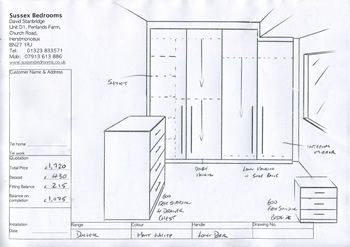 Sussex Bedrooms
David Stanbridge
Unit D1, Penlands Farm,
Church Road,
Herstmonceux
BN27 1RJ
Tel: 01323 833571
Mob: 07913 613 886
www.sussexbedrooms.co.uk
Customer Name & Address
Tel home
Tel work
Quotation
Total Price £1,720
Deposit £430
Fitting Balance £215
Balance on
completion £1,075
Installation
Date
Range
Finish
Handle
Drawing No.
Matt White
Long Bar
Double
Hanging
Long Hanging
Interior
Mirror
600
Freestanding
4 Drawer
Chest
600
Freestanding
Bedside